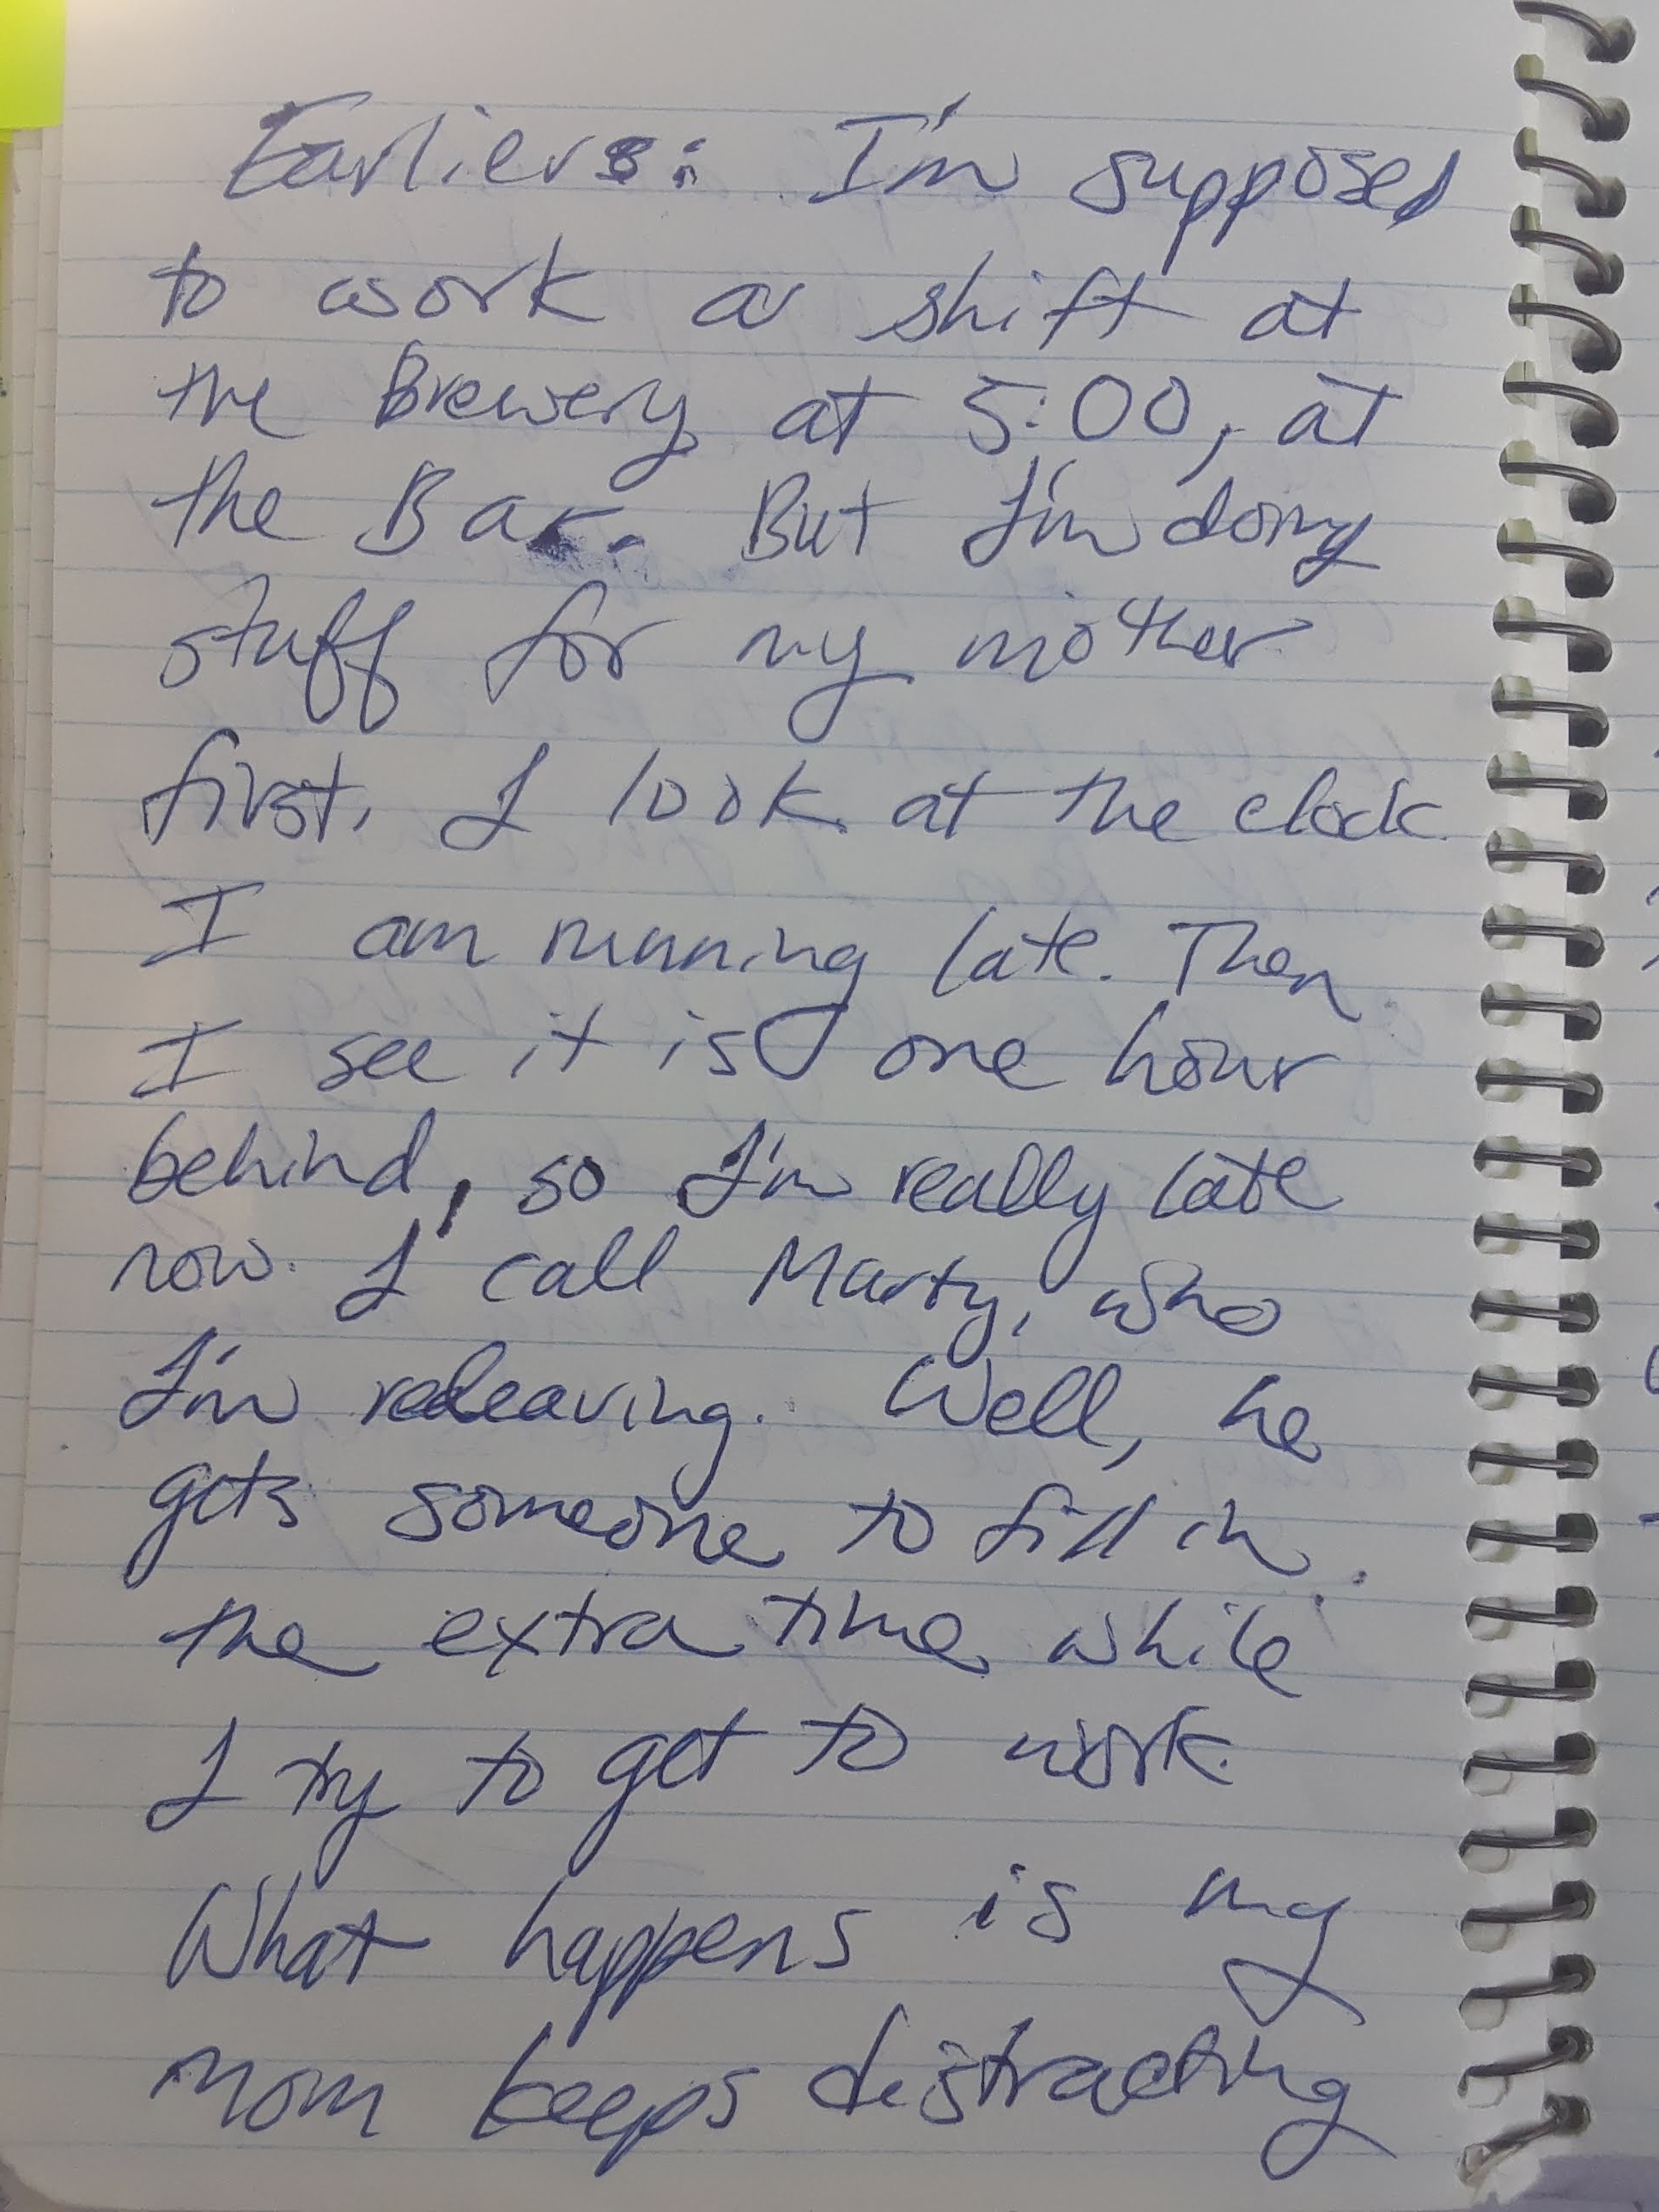 Earliers: I'm supposed
to work a shift at
the Brewery at 5:00, at
the Bar. But I'm doing
stuff for my mother
first. I look at the clock.
I am running late. Then
I see it is one hour
behind, so I'm really late
now. I call Marty, who
I'm releaving. Well, he
gets someone to fill in
the extra time while
I try to get to work.
What happens is my
mom keeps distracting